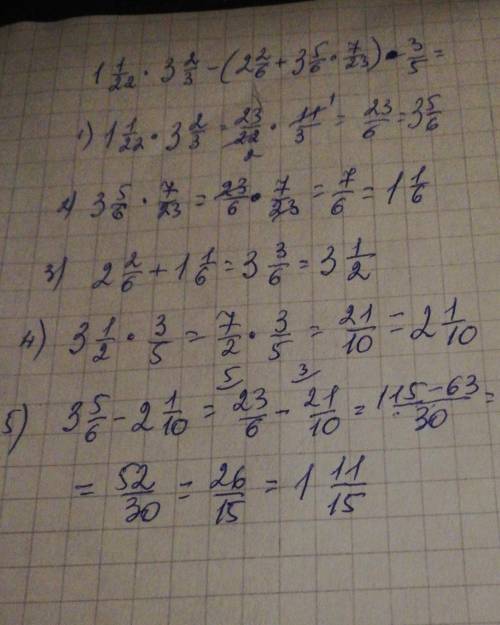 1 1/22 · 3 2/3 - (2 2/6 + 3 5/6 · 7/23) · 3/5 =
1) 1 1/22 · 3 2/3 = 23/22 2 · 11/3 1 = 23/6 = 3 5/6
2) 3 5/6 · 7/23 = 23/6 · 7/23 = 7/6 = 1 1/6
3) 2 2/6 + 1 1/6 = 3 3/6 = 3 1/2
4) 3 1/2 · 3/5 = 7/2 · 3/5 = 21/10 = 2 1/10
5) 3 5/6 - 2 1/10 = 5) 23/6 - 3) 21/10 = 115-63/30 =
= 52/30 = 26/15 = 1 11/15